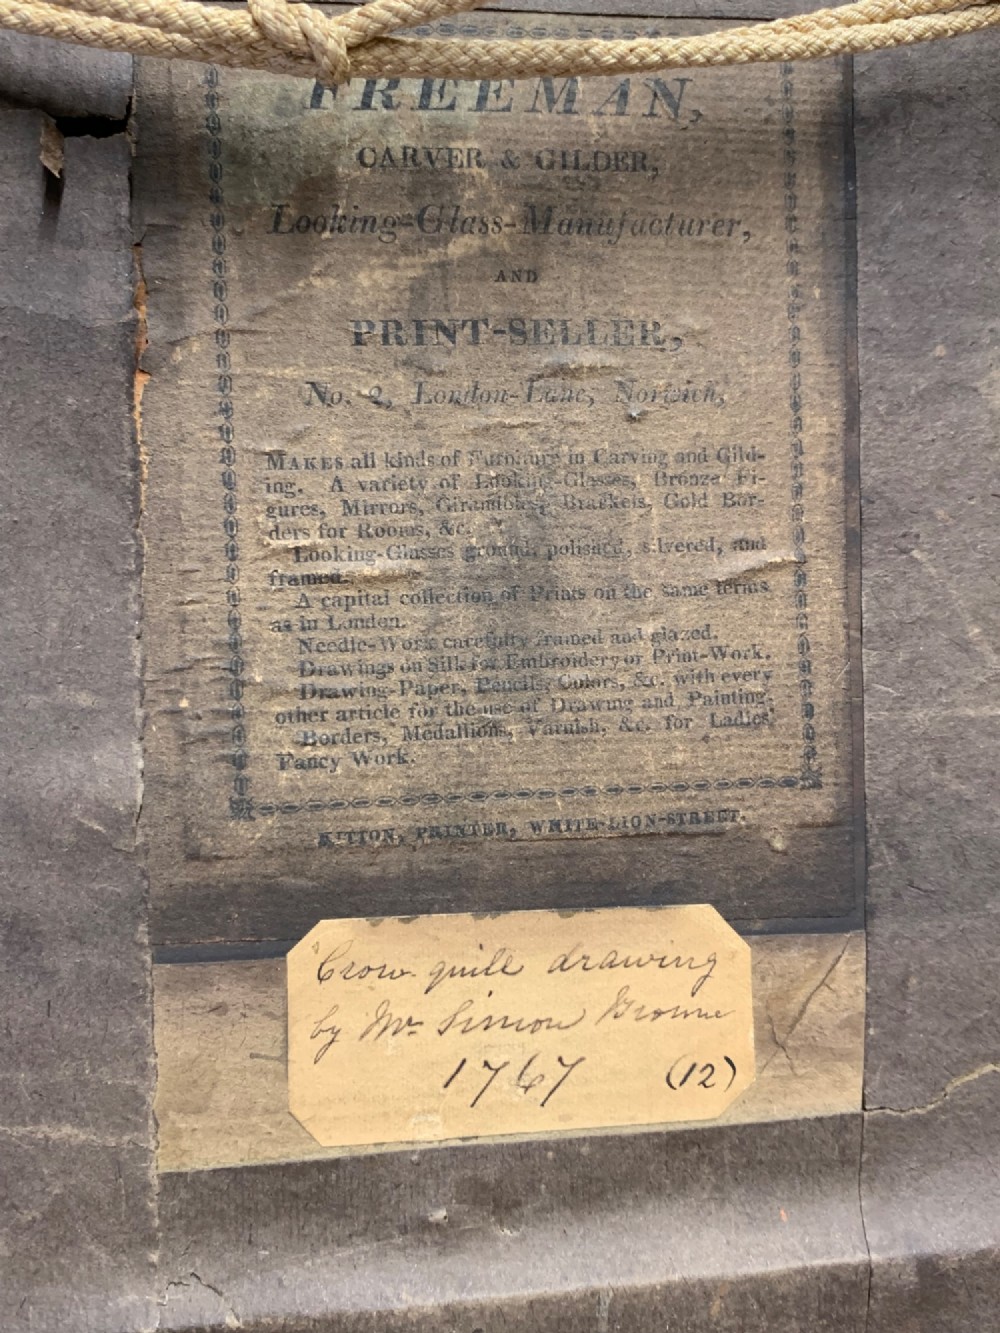 FREEMAN,
CARVER & GILDER,
Looking-Glass-Manufacturer,
AND
PRINT-SELLER,
No. 2, London-Lane, Norwich,
MAKES all kinds of Furniture in Carving and Gild-
ing. A variety of Looking-Glasses, Bronze Fi-
gures, Mirrors, Girandoles, Brackets, Gold Bor-
ders for Rooms, &c.
Looking-Glasses ground, polished, silvered, and
framed.
A capital collection of Prints on the same terms
as in London.
Needle-Work carefully framed and glazed.
Drawings on Silk for Embroidery or Print-Work.
Drawing-Paper, Pencils, Colors, &c. with every
other article for the use of Drawing and Painting.
Borders, Medallions, Varnish, &c. for Ladies'
Fancy Work.
KITTON, PRINTER, WHITE-LION-STREET.
Crow quill drawing
by Mr. Simon Browne
1767 (12)